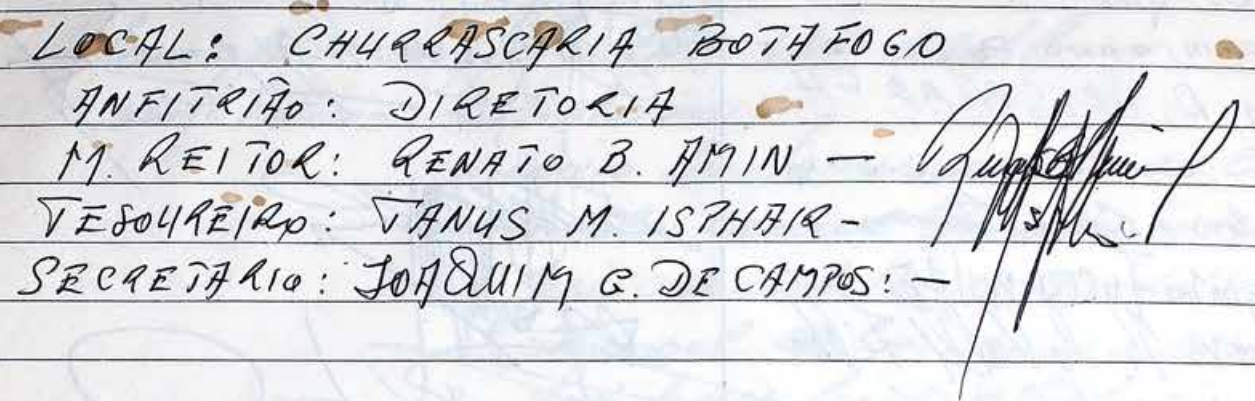 LOCAL: CHURRASCARIA BOTAFOGO
ANFITRIÃO: DIRETORIA
M. REITOR: RENATO B. AMIN —
TESOUREIRO: TANUS M. ISPHAIR -
SECRETÁRIO: JOAQUIM G. DE CAMPOS: —